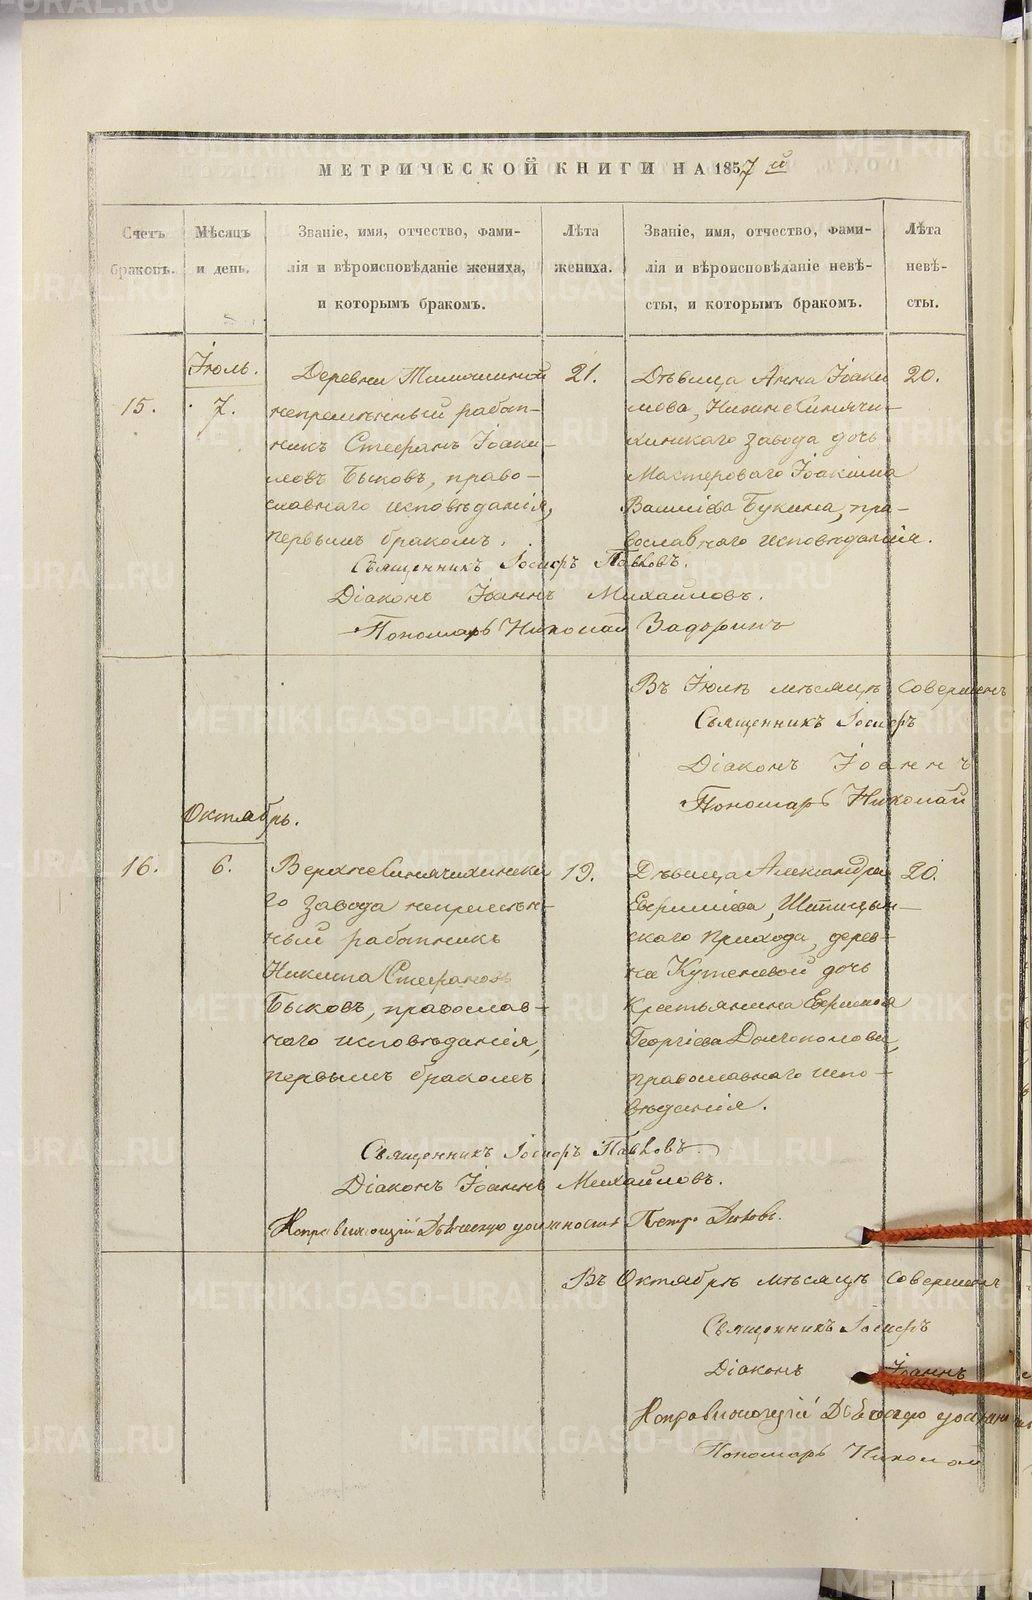 МЕТРИЧЕСКОЙ КНИГИ НА 1857 й
Счетъ браковъ.
Мѣсяцъ и день.
Званіе, имя, отчество, фами-
лія и вѣроисповѣданіе жениха,
и которымъ бракомъ.
Лѣта жениха.
Званіе, имя, отчество, фами-
лія и вѣроисповѣданіе невѣ-
сты, и которымъ бракомъ.
Лѣта невѣ-
сты.
Іюль.
15.
7.
Деревни
непремѣнный работ-
никъ Стефанъ Іоаки-
мовъ Быковъ, право-
славнаго исповѣданія,
первымъ бракомъ.
21.
Дѣвица Анна Іоаки
мова, Нижнесинячи-
хинскаго завода дочь
Мастероваго Іоакима
Василіева Букина, пра-
вославнаго исповѣданія.
20.
Священникъ Іосифъ Павловъ.
Діаконъ Іоаннъ Михайловъ.
Пономарь Николай Задоринъ
Въ Іюлѣ мѣсяцѣ совершенъ
Священникъ Іосифъ
Діаконъ Іоаннъ
Пономарь Николай
Октябрь.
16.
6.
Верхнесинячихинска
го завода непремѣн-
ный работникъ
Никита Стефановъ
Быковъ, православ-
наго исповѣданія,
первымъ бракомъ
19.
Дѣвица Александра
Евфиміева,
скаго прихода, дерев-
ни дочь
крестьянина Евфимія
Георгіева Долгополова,
православнаго испо-
вѣданія.
20.
Священникъ Іосифъ Павловъ.
Діаконъ Іоаннъ Михайловъ.
Исправляющій должность Петръ
Въ Октябрѣ мѣсяцѣ совершенъ
Священникъ Іосифъ
Діаконъ Іоаннъ
Исправляющій
Пономарь Николай
METRIKI.GASO-URAL.RU